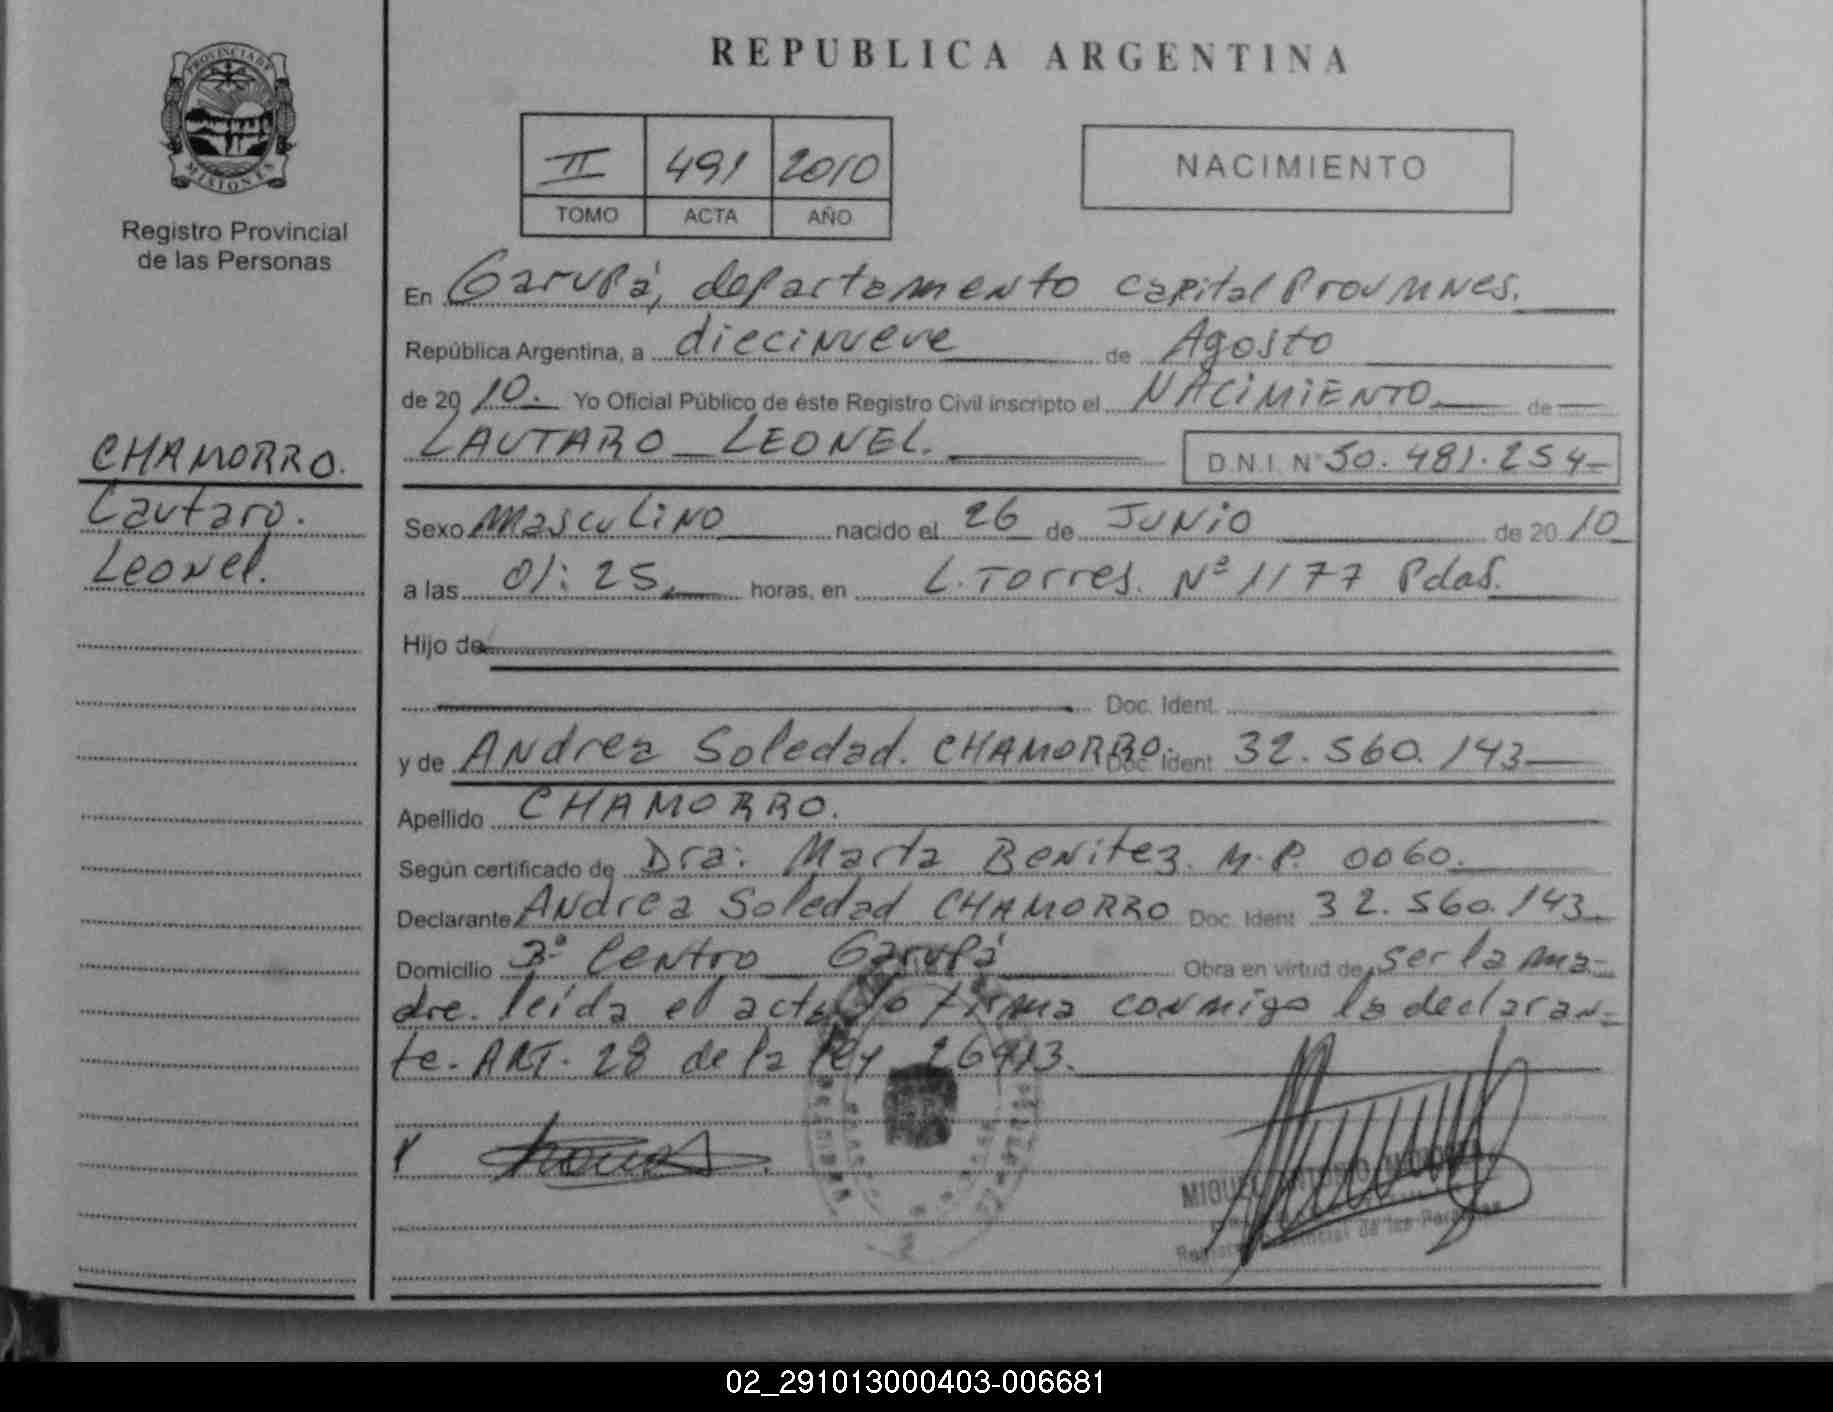 REPUBLICA ARGENTINA
PROVINCIA DE
MISIONES
Registro Provincial
de las Personas
II 491 2010
TOMO ACTA AÑO
NACIMIENTO
En Garupá, departamento Capital Prov Mnes.
República Argentina, a diecinueve de Agosto
de 20 10. Yo Oficial Público de éste Registro Civil inscripto el NACIMIENTO de
LAUTARO LEONEL. D.N.I. Nº 50.481.254
CHAMORRO.
Lautaro.
Leonel.
Sexo Masculino nacido el 26 de JUNIO de 20 10
a las 01:25 horas, en L. Torres. Nº 1177 Pdas.
Hijo de
Doc. Ident.
y de Andrea Soledad. CHAMORRO. Doc. Ident 32.560.143
Apellido CHAMORRO.
Según certificado de Dra: Marta Benitez. M.P. 0060.
Declarante Andrea Soledad CHAMORRO Doc. Ident 32.560.143
Domicilio 3º Centro Garupá Obra en virtud de ser la ma-
dre. leída el acta lo firma conmigo la declaran-
te. ART. 28 de la ley 26413.
MIGUEL ANTONIO
Registro Provincial de las Personas
02_291013000403-006681